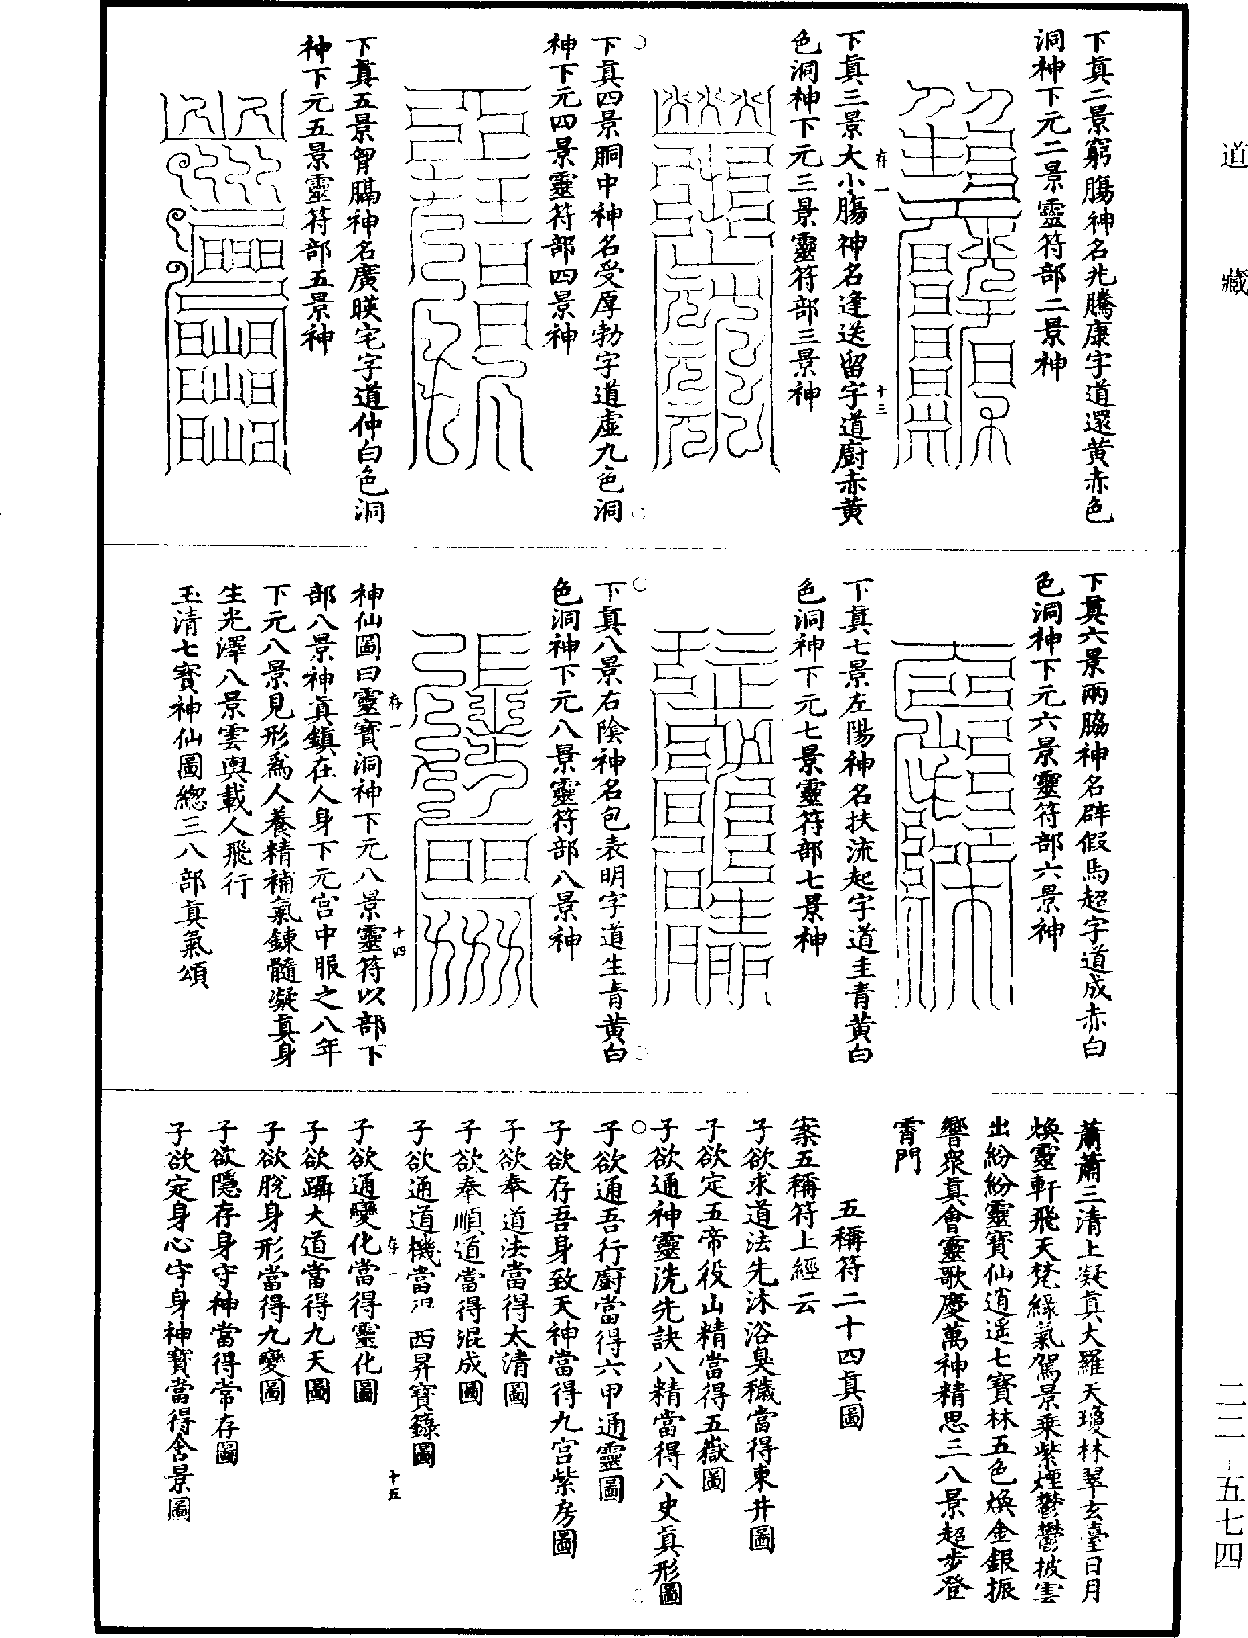 道藏
下真二景窮膓神名兆騰康字道還黃赤色
洞神下元二景靈符部二景神
下真三景大小膓神名逢送留字道廚赤黃
色洞神下元三景靈符部三景神
下真四景胴中神名受厚勃字道虛九色洞
神下元四景靈符部四景神
下真五景胷膈神名廣暎宅字道仲白色洞
神下元五景靈符部五景神
下真六景兩脇神名辟假馬超字道成赤白
色洞神下元六景靈符部六景神
下真七景左陽神名扶流起字道圭青黃白
色洞神下元七景靈符部七景神
下真八景右陰神名包表明字道生青黃白
色洞神下元八景靈符部八景神
神仙圖曰靈寶洞神下元八景靈符以部下
部八景神真鎮在人身下元宮中服之八年
下元八景見形爲人養精補氣鍊髓凝真身
生光澤八景雲輿載人飛行
玉清七寶神仙圖總三八部真氣頌
蕭蕭三清上凝真大羅天瓊林翠玄臺日月
煥靈軒飛天梵緑氣駕景乗紫煙鬱鬱披雲
出紛紛靈寶仙逍遥七寶林五色煥金銀振
響衆真會靈歌慶萬神精思三八景超步登
霄門
五稱符二十四真圖
案五稱符上經云
子欲求道法先沐浴臭穢當得東井圖
子欲定五帝役山精當得五嶽圖
子欲通神靈洗先訣八精當得八史真形圖
子欲通吾行廚當得六甲通靈圖
子欲存吾身致天神當得九宮紫房圖
子欲奉道法當得太清圖
子欲奉順道當得混成圖
子欲通道機當 西昇寶籙圖
子欲通變化當得靈化圖
子欲躡大道當得九天圖
子欲脫身形當得九變圖
子欲隱存身守神當得常存圖
子欲定身心守身神寶當得含景圖
存一
十三
存一
十四
存一
十五
二二－五七四